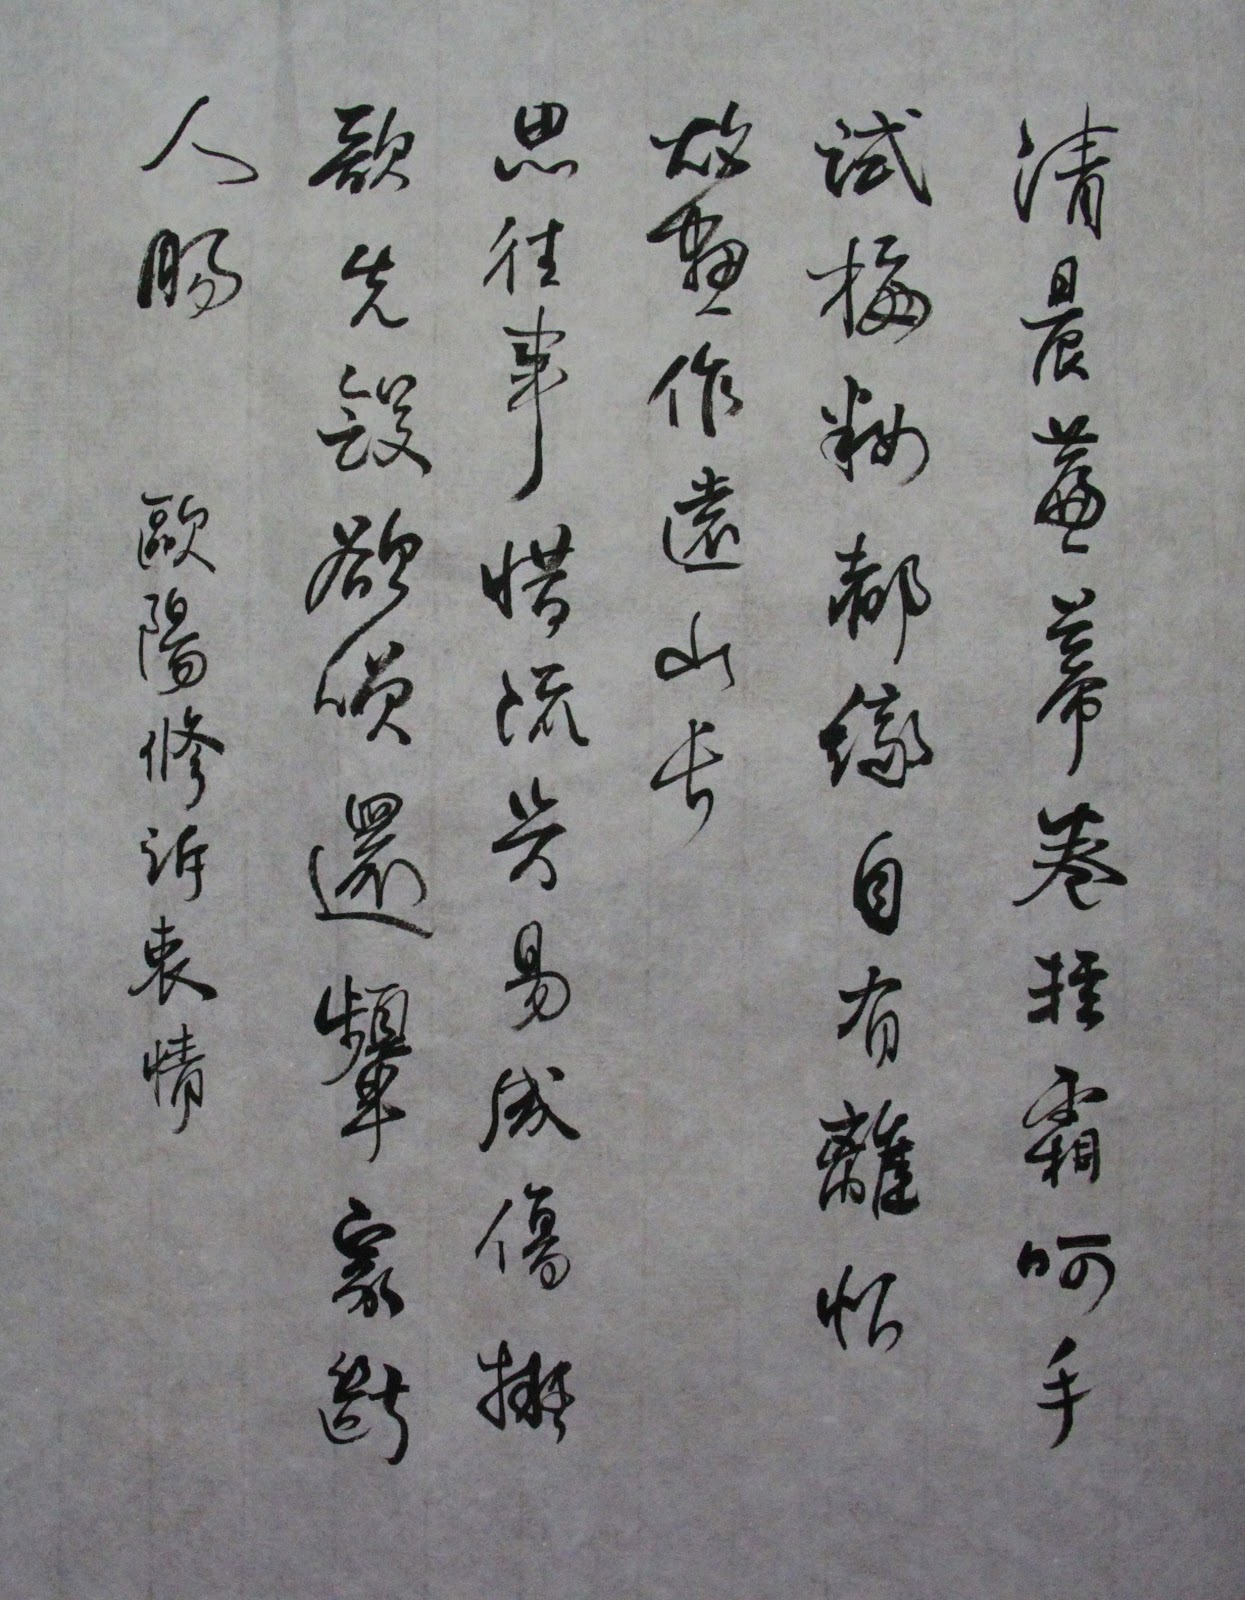 清晨簾幕卷輕霜呵手
試梅粧都緣自有離恨
故畫作遠山長
思往事惜流芳易成傷擬
歌先斂欲咲還顰最斷
人腸 歐陽修訴衷情